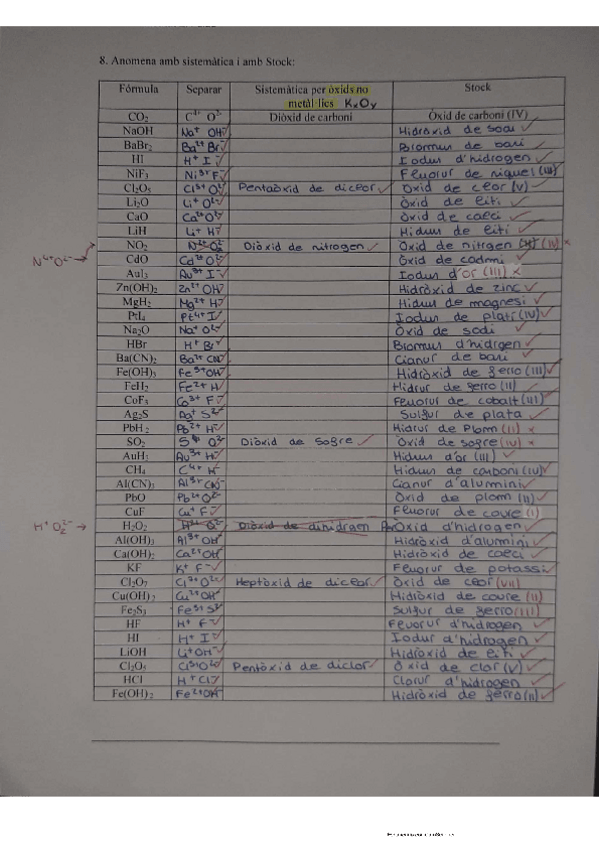 8. Anomena amb sistemàtica i amb Stock:
Fórmula Separar Sistemàtica per òxids no metàl·lics KxOy Stock
CO2 C4+ O2- Diòxid de carboni Òxid de carboni (IV)
NaOH Na+ OH- Hidròxid de sodi
BaBr2 Ba2+ Br- Bromur de bari
HI H+ I- Iodur d'hidrogen
NiF3 Ni3+ F- Fluorur de níquel (III)
Cl2O5 Cl5+ O2- Pentaòxid de diclor Òxid de clor (V)
Li2O Li+ O2- Òxid de liti
CaO Ca2+ O2- Òxid de calci
LiH Li+ H- Hidrur de liti
NO2 Diòxid de nitrogen Òxid de nitrgen (IV) x
N4+O2-
CdO Cd2+ O2- Òxid de cadmi
AuI3 Au3+ I- Iodur d'or (III) x
Zn(OH)2 Zn2+ OH- Hidròxid de zinc
MgH2 Mg2+ H- Hidrur de magnesi
PtI4 Pt4+ I- Iodur de platí (IV)
Na2O Na+ O2- Òxid de sodi
HBr H+ Br- Bromur d'hidrgen
Ba(CN)2 Ba2+ CN- Cianur de bari
Fe(OH)3 Fe3+ OH- Hidròxid de ferro (III)
FeH2 Fe2+ H- Hidrur de ferro (II)
CoF3 Co3+ F- Fluorur de cobalt (III)
Ag2S Ag+ S2- Sulfur de plata
PbH2 Pb2+ H- Hidrur de Plom (II) x
SO2 O2- Diòxid de sofre Òxid de sofre (IV) x
AuH3 Au3+ H- Hidrur d'or (III)
CH4 C4+ H- Hidrur de carboni (IV)
Al(CN)3 Al3+ CN- Cianur d'alumini
PbO Pb2+ O2- Òxid de plom (II)
CuF Cu+ F- Fluorur de coure (I)
H+ O22- H2O2 Diòxid de dihidrogen Òxid d'hidrogen
Al(OH)3 Al3+ OH- Hidròxid d'alumini
Ca(OH)2 Ca2+ OH- Hidròxid de calci
KF K+ F- Fluorur de potassi
Cl2O7 Cl7+ O2- Heptòxid de diclor Òxid de clor (VII)
Cu(OH)2 Cu2+ OH- Hidròxid de coure (II)
Fe2S3 Fe3+ S2- Sulfur de ferro (III)
HF H+ F- Fluorur d'hidrogen
HI H+ I- Iodur d'hidrogen
LiOH Li+ OH- Hidròxid de liti
Pentòxid de diclor Òxid de clor (V)
HCl H+ Cl- Clorur d'hidrogen
Fe(OH)2 Fe2+ OH- Hidròxid de ferro (II)